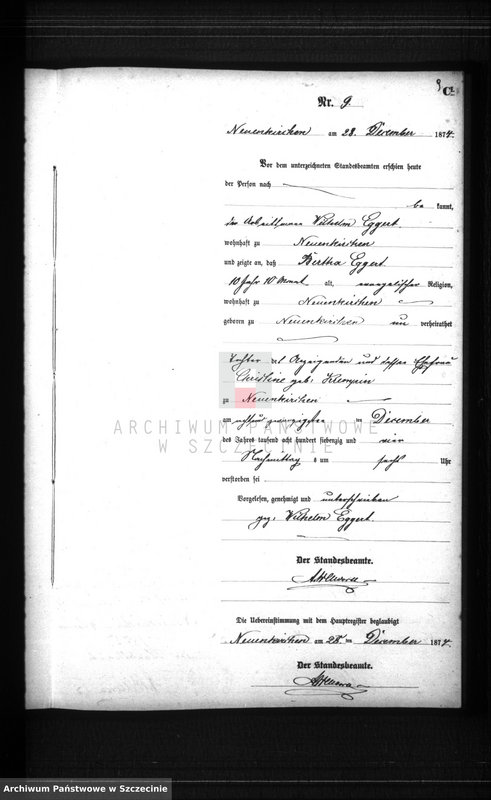 Nr. 9
Neuenkirchen am 28. December 1874.
Vor dem unterzeichneten Standesbeamten erschien heute
der Person nach
be kannt,
der Arbeitsmann Wilhelm Eggert
wohnhaft zu Neuenkirchen
und zeigte an, daß Bertha Eggert
10 Jahr 10 Monat alt, evangelischer Religion,
wohnhaft zu Neuenkirchen
geboren zu Neuenkirchen un verheirathet
Tochter des Anzeigenden und dessen Ehefrau
Christine geb:
zu Neuenkirchen
am acht und zwanzigsten im December
des Jahres tausend acht hundert siebenzig und vier
Nachmittag s um sechs Uhr
verstorben sei
Vorgelesen, genehmigt und unterschrieben
gez: Wilhelm Eggert.
Der Standesbeamte.
Die Uebereinstimmung mit dem Hauptregister beglaubigt
Neuenkirchen am 28. ten December 1874.
Der Standesbeamte.
ARCHIWUM PAŃSTWOWE
W SZCZECINIE
Archiwum Państwowe w Szczecinie